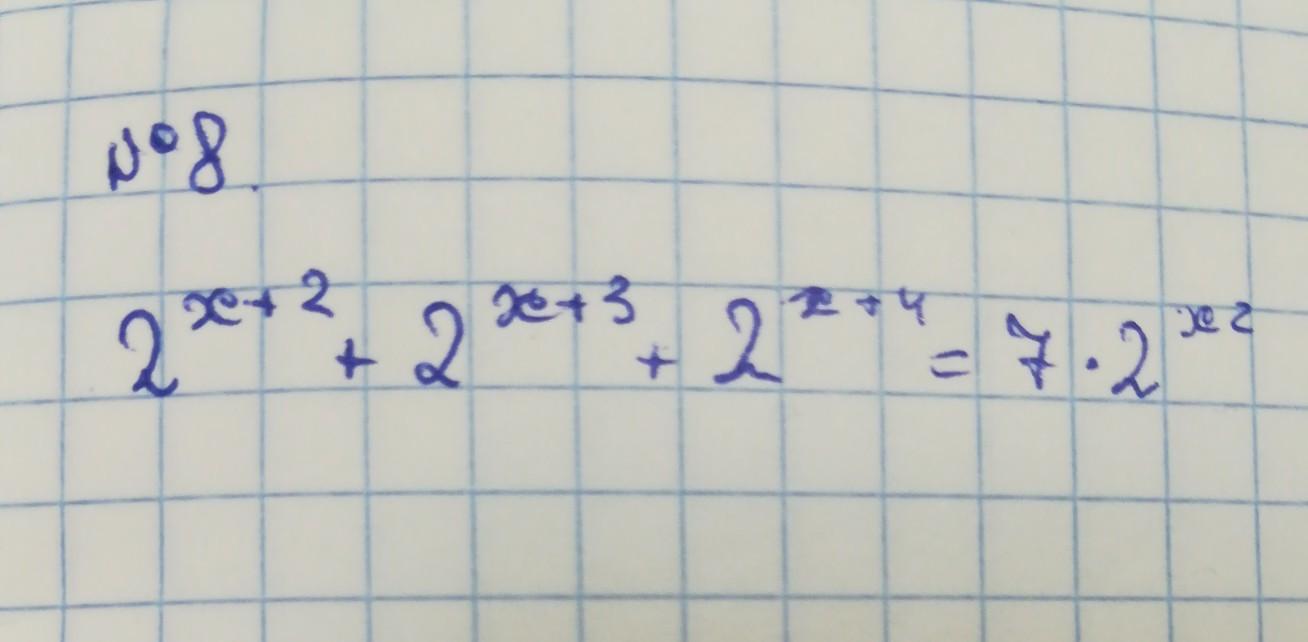 №8.
2^{x+2} + 2^{x+3} + 2^{x+4} = 7 · 2^{x^2}